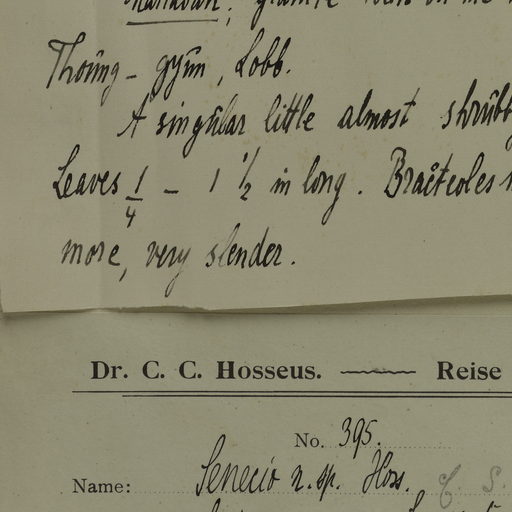 Thoung-gyun, Lobb.
A singular little almost
Leaves 1/4 — 1 1/2 in long. Bracteoles
more, very slender.
Dr. C. C. Hosseus. Reise
No. 395.
Name: Senecio n. sp. Hoss. C. S.